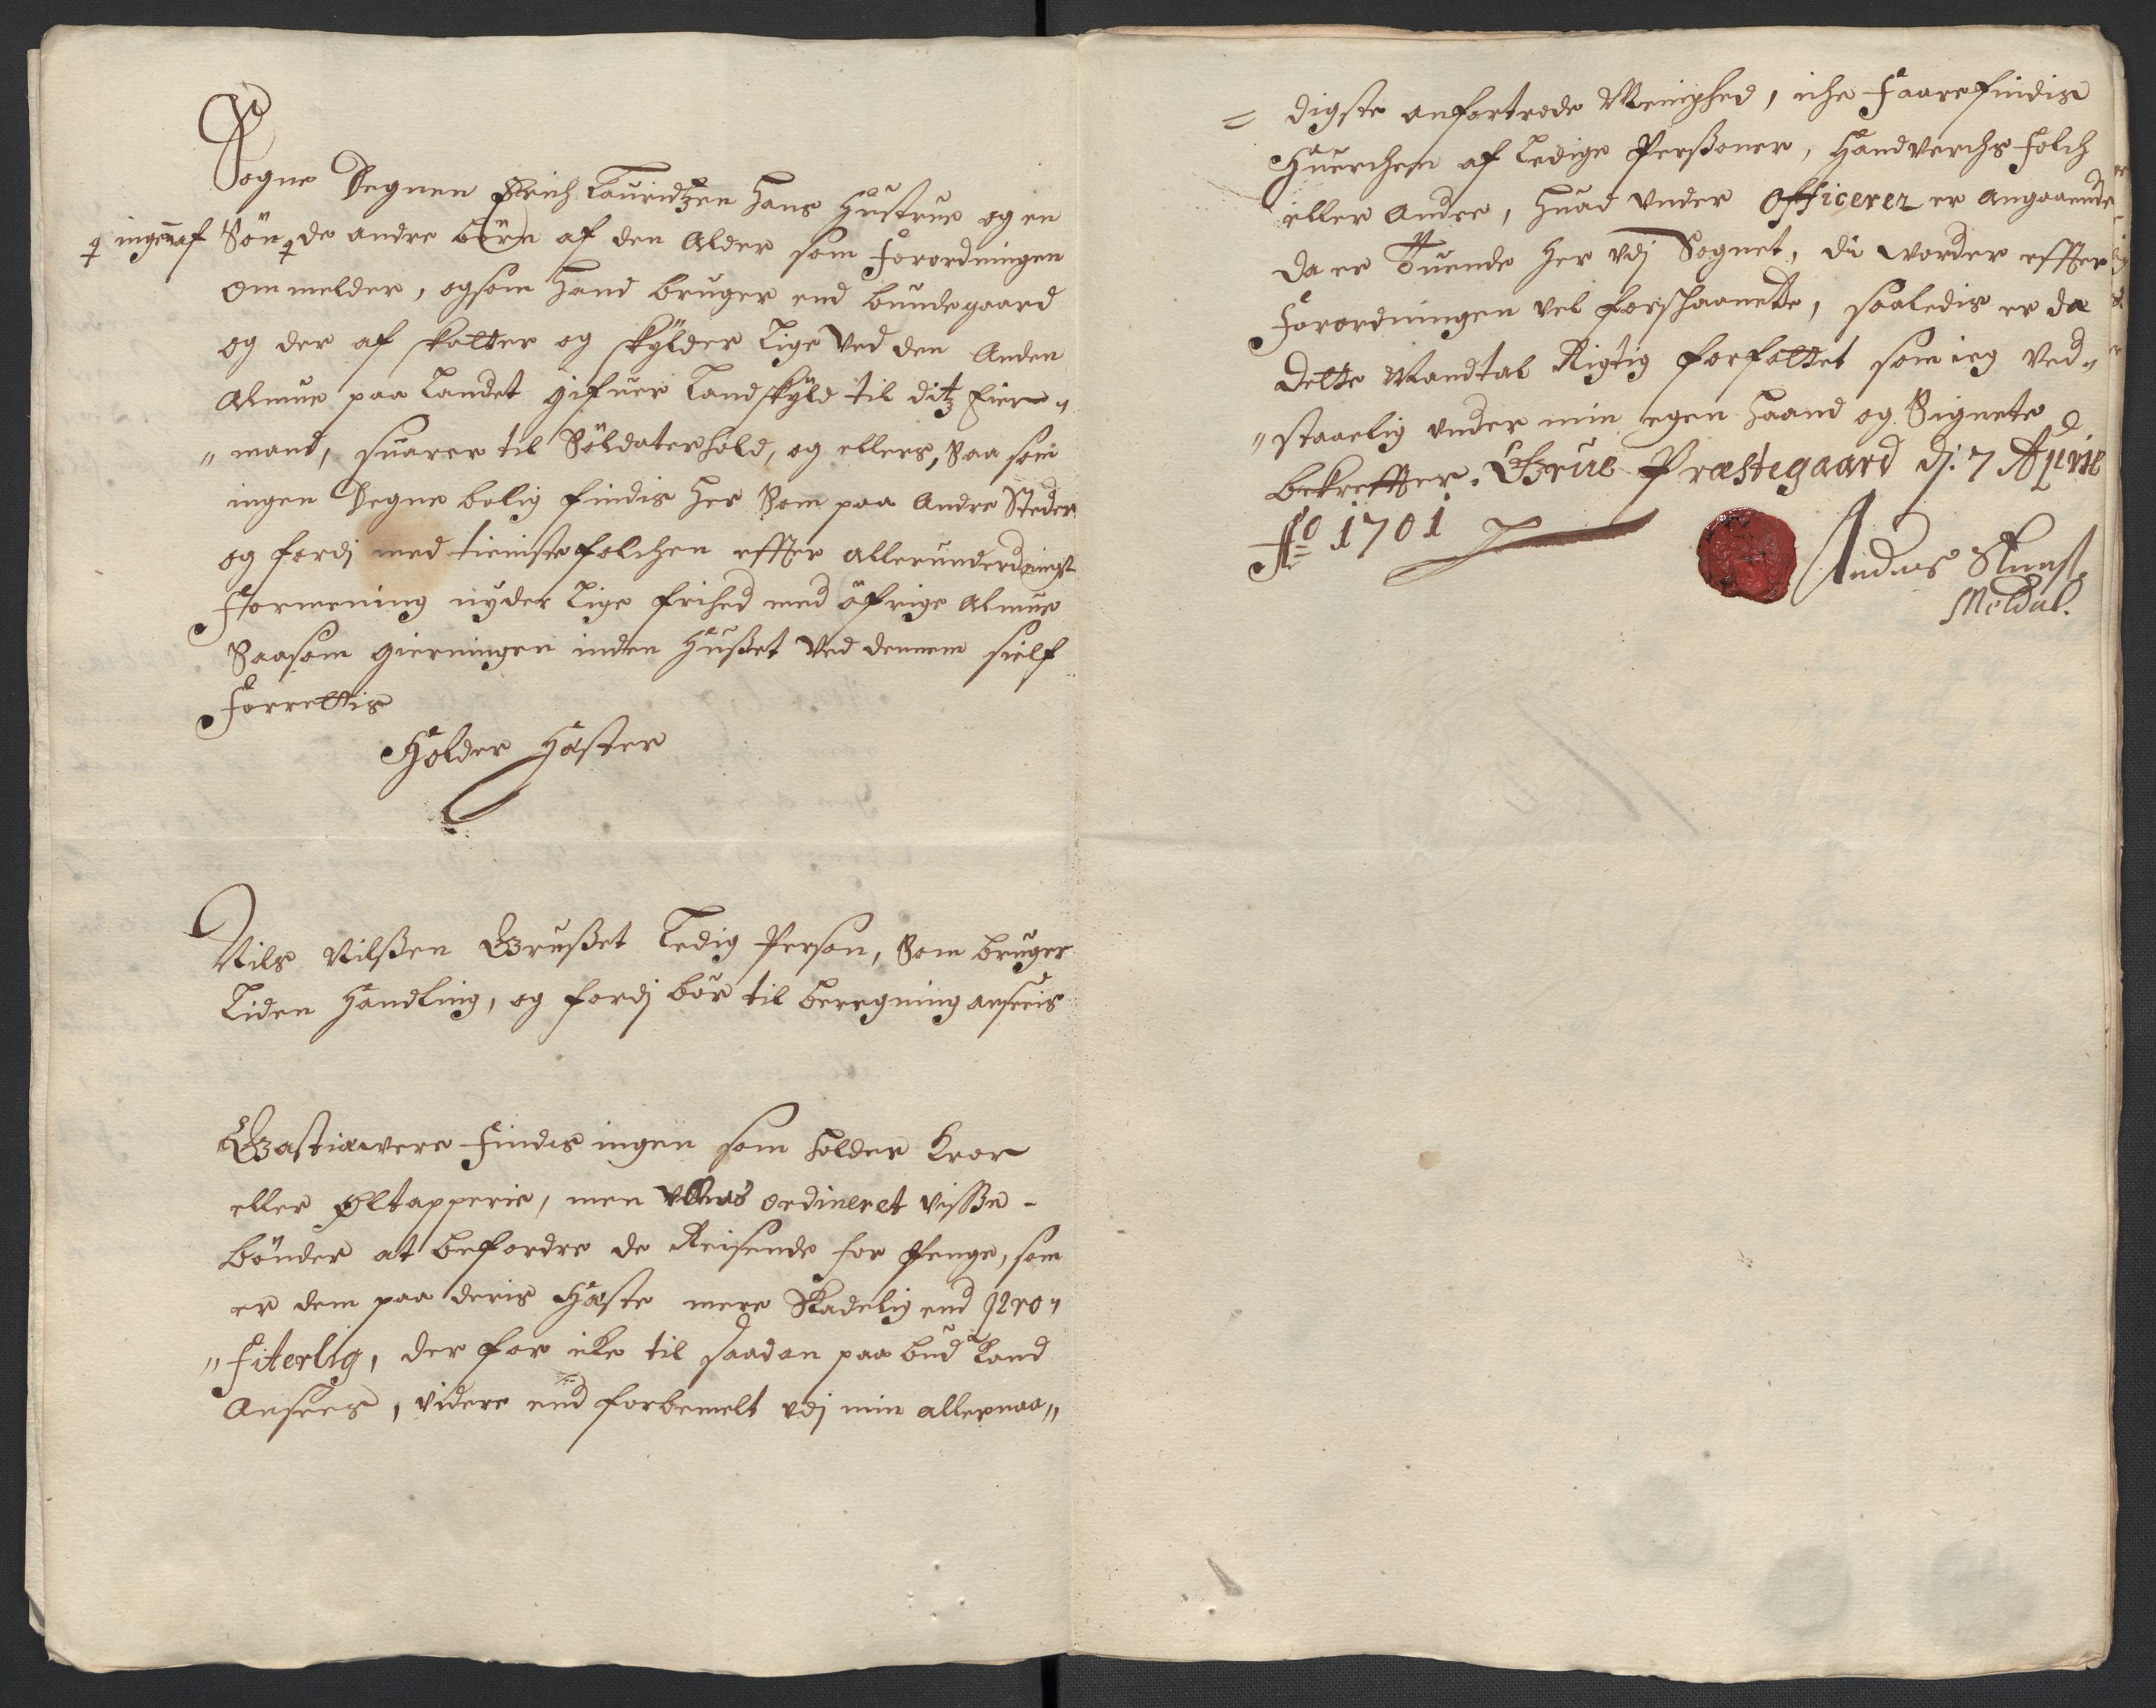 Sogne Degnen Erich Lauridtzen Hans Hustrue og en
ingen af Sön, de andre börn af den Alder som Forordningen
om melder, og som Hand bruger end bundegaard
og der af skatter og skylder Lige ved den Anden
Almue paa Landet gifuer Landskyld til ditz Eier„
„mand, suarer til Soldaterhold, og ellers, Saa som
ingen Degne bolig findis her Som paa Andre Steder
og fordj med tienistefolchen effter allerunderdanigst
Formening nyder Lige frihed med öfrige Almue
Saasom gierningen inden Hußet ved dennem sielf
Forrettis
Holder Hæster
Nils Nilßen Grußet Ledig Person, Som bruger
Liden Handling, og fordj bör til beregning ansees
Gastgivere Findis ingen som holder Kroe
eller Øltapperie, men ordineret visße
bönder at befordre de Reisende for Penge, som
er dem paa deris Hæste mere Skadelig end pro„
„fiterlig, der for icke til saadan paa bud kand
Ansees, videre end forbemelt vdj min allernaa„
= digste anfortrode Menighed, iche Faarefindis
Huerchen af Ledige Perßoner, Handverchs Folch
eller Andre, huad under Officerer er Angaaende
da er Tuende her vdj Sognet, di worder effter
Forordningen vel forschaanede, saaledis er da
dette Mandtal Rigtig forfattet som ieg ved„
„staaelig under min egen Haand og Signete
bekreffter. Grue Præstegaard dj. 7 April
Ao 1701
Andres
Meldal.